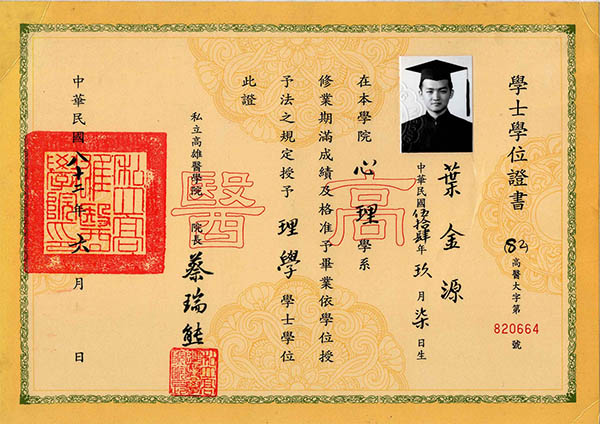 學士學位證書
82高醫大字第820664號
葉金源
中華民國伍拾肆年玖月柒日生
在本學院心理學系
修業期滿成績及格准予畢業依學位授
予法之規定授予理學學士學位
此證
高醫
私立高雄醫學院 院長 蔡瑞熊
中華民國八十二年六月 日
私立高雄醫學院印